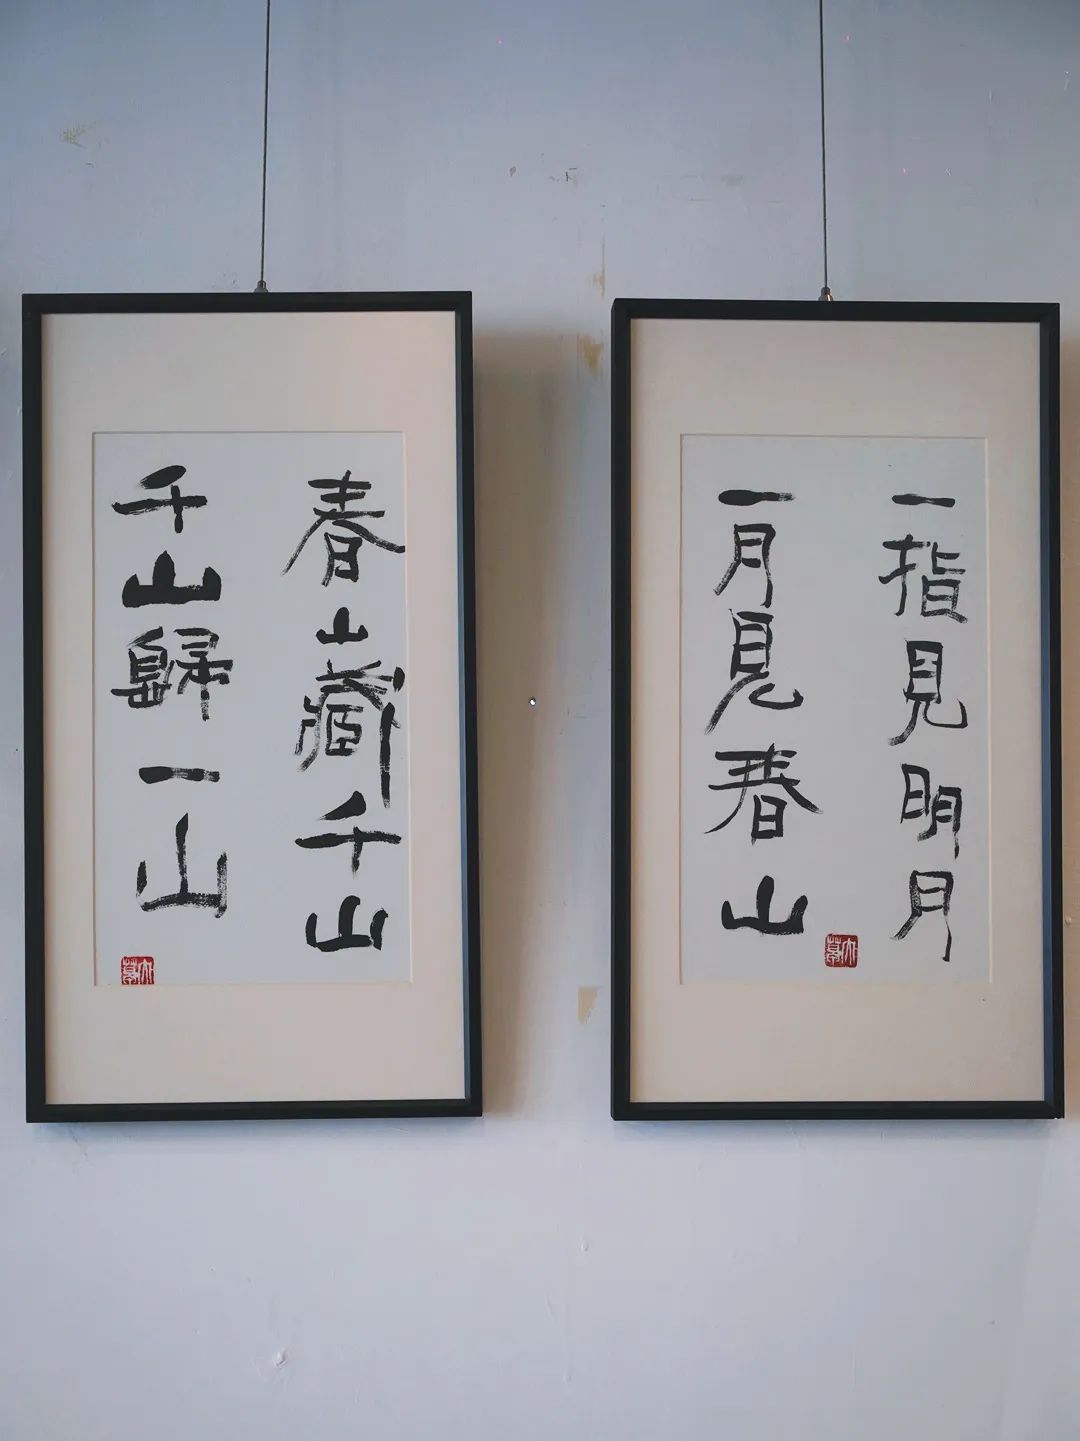 一指見明月
一月見春山
春山藏千山
千山歸一山